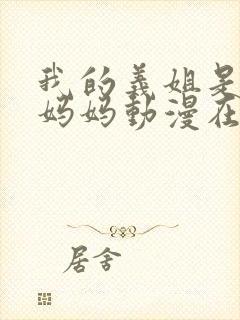 我的义姐是
妈妈動漫在
居舍